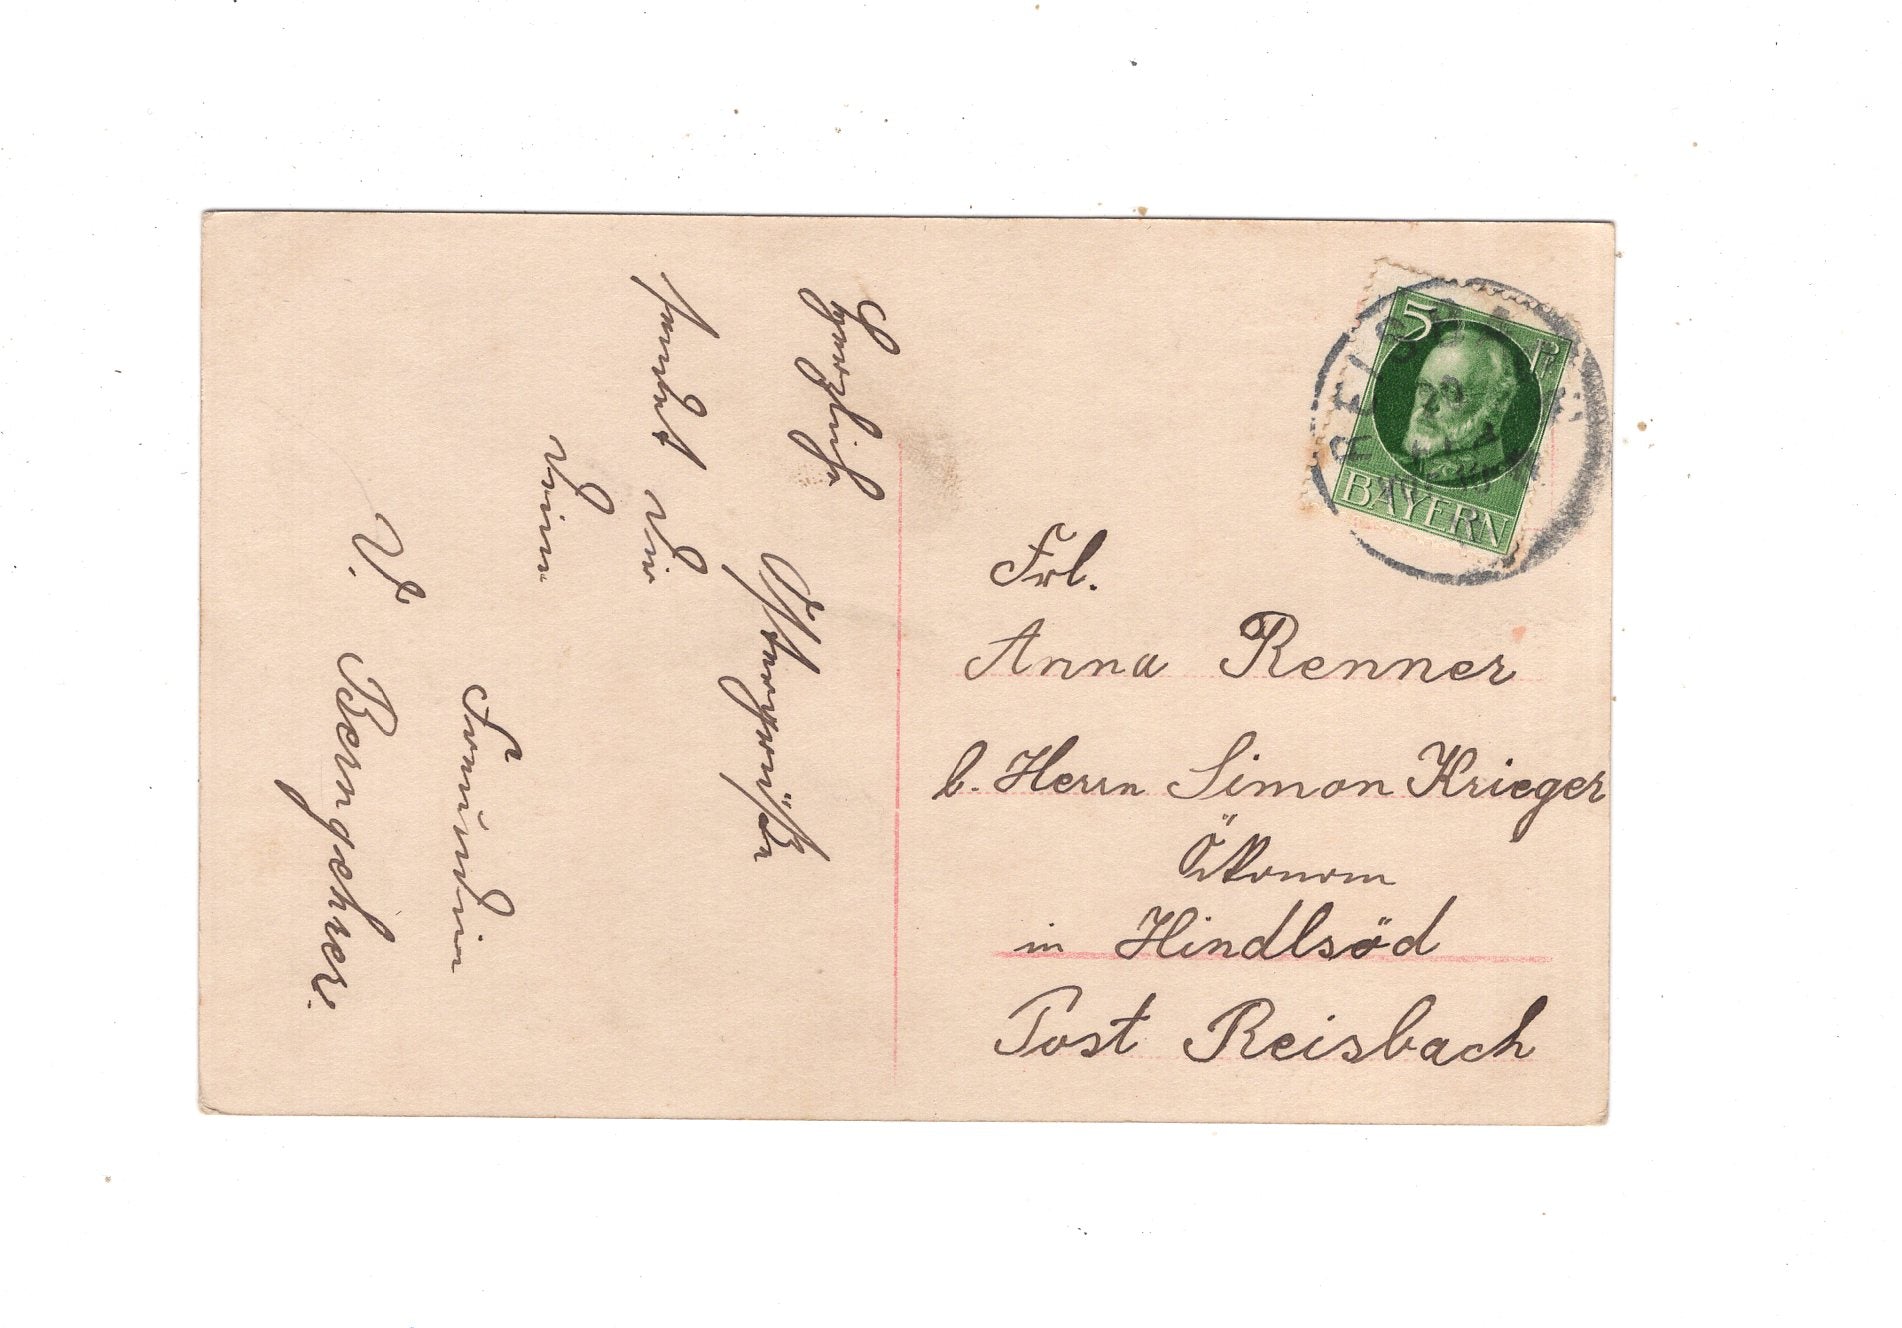 Herzliche
Ostergrüße
sendet Dir
Deine
Freundin
V. Berngehrer.
5 Pf
BAYERN
REISBACH
Frl.
Anna Renner
b. Herrn Simon Krieger
Ökonom
in Hindlsöd
Post Reisbach